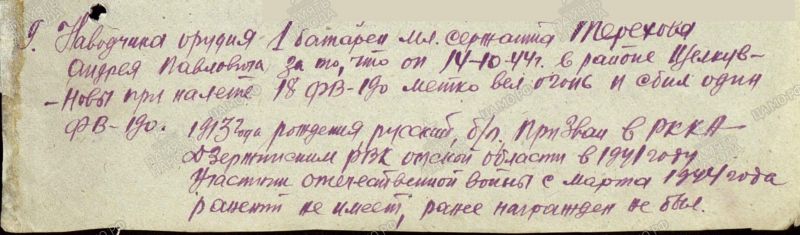 9. Наводчика орудия 1 батареи мл. сержанта Терехова
Андрея Павловича за то, что он 14-10-44г. в районе Целкув-
-Новы при налете 18 ФВ-190 метко вел огонь и сбил один
ФВ-190. 1913 года рождения, русский, б/п. Призван в РККА
Дзержинским РВК омской области в 1941 году
Участник отечественной войны с марта 1944 года
ранений не имеет, ранее награжден не был.